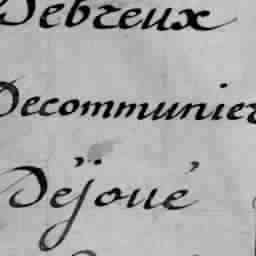 Debreux
Decommunier
Déjoué